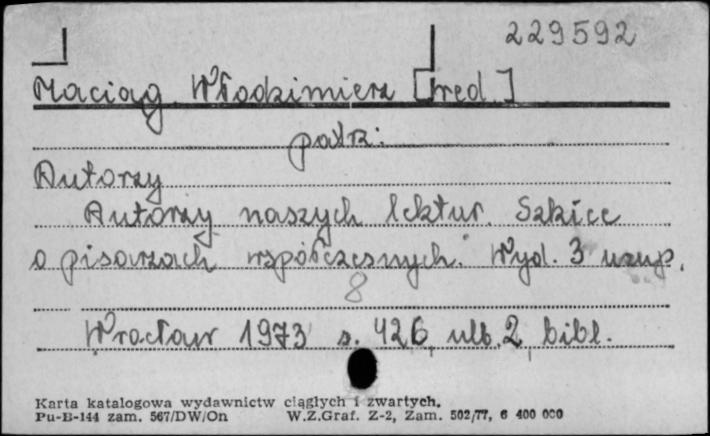 229592
Maciąg Włodzimierz [red.]
patrz:
Autorzy
Autorzy naszych lektur. Szkice
o pisarzach współczesnych. Wyd. 3 uzup.
8
Wrocław 1973 s. 426, ulb. 2, bibl.
Karta katalogowa wydawnictw ciągłych i zwartych.
Pu-B-144 zam. 567/DW/On W.Z.Graf. Z-2, Zam. 502/77, 6 400 000